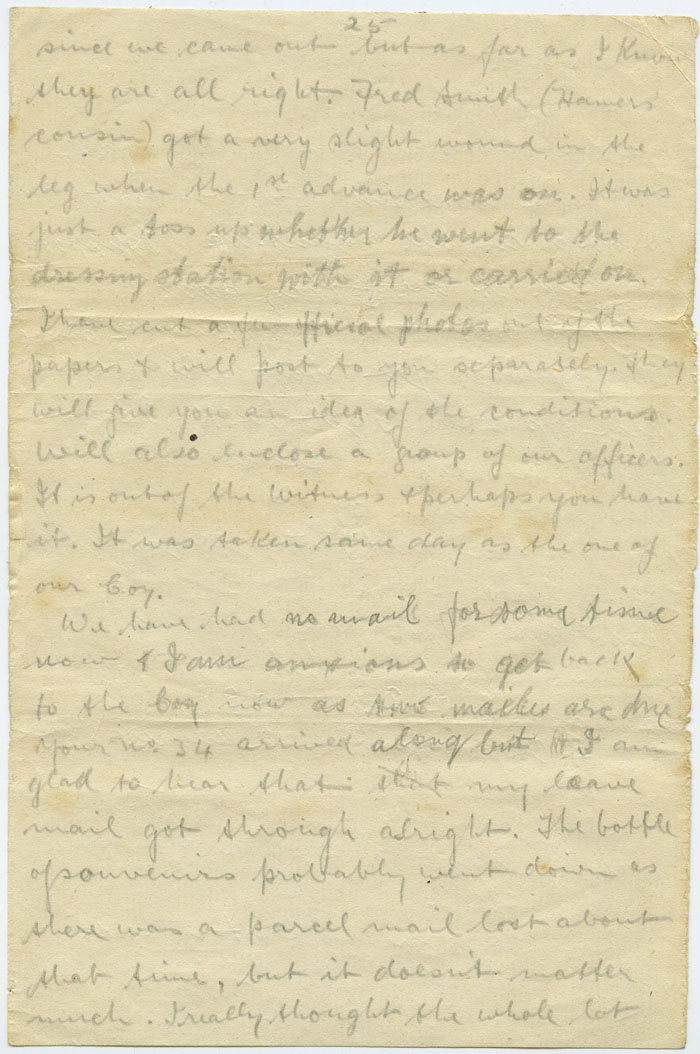 25
since we came out but as far as I know
they are all right. Fred Smith (Hamers
cousin) got a very slight wound in the
leg when the 1st advance was on. It was
just a toss up whether he went to the
dressing station with it or carried on.
I have cut a few official photos out of the
papers & will post to you separately. They
will give you an idea of the conditions.
Will also enclose a group of our officers.
It is out of the Witness & perhaps you have
it. It was taken same day as the one of
our Coy.
We have had no mail for some time
now & I am anxious to get back
to the Coy now as two mailes are due
your no 34 arrived along but I am
glad to hear that that my leave
mail got through alright. The bottle
of souvenirs probably went down as
there was a parcel mail lost about
that time, but it doesn't matter
much. I really thought the whole lot